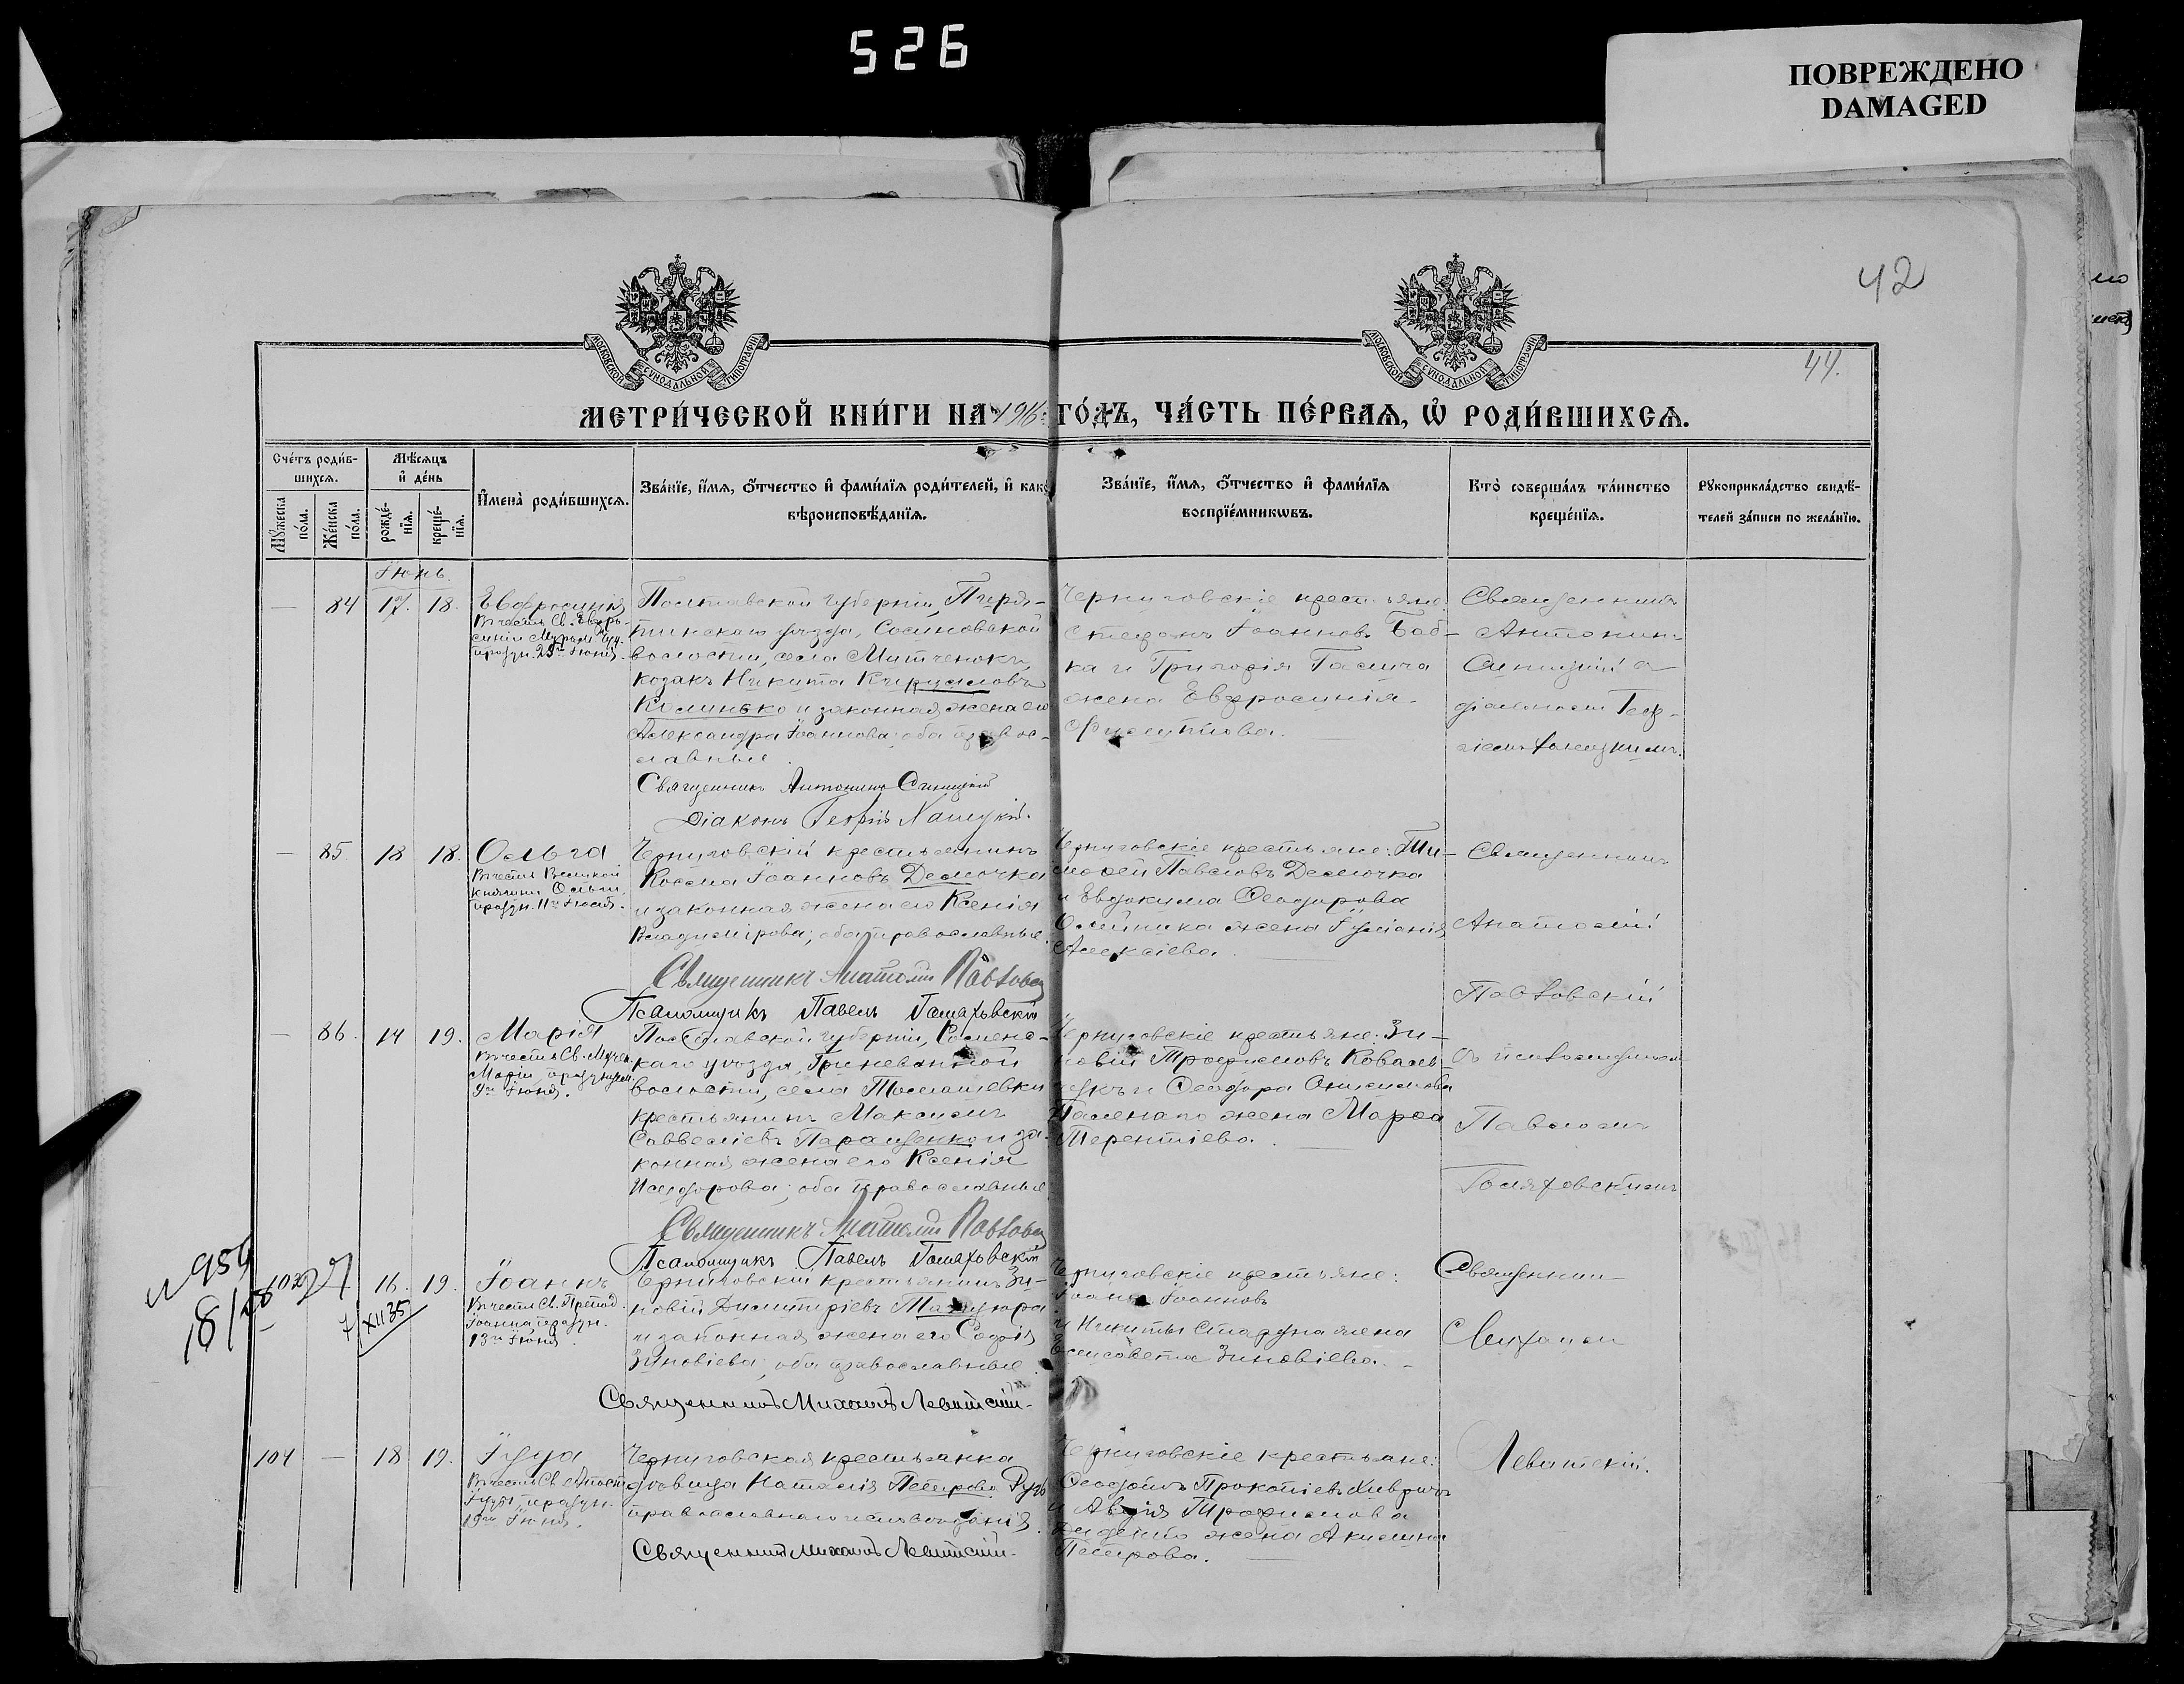 526
ПОВРЕЖДЕНО
DAMAGED
42
44.
МОСКОВСКОЙ СѴНОДАЛЬНОЙ ТИПОГРАФІИ
МОСКОВСКОЙ СѴНОДАЛЬНОЙ ТИПОГРАФІИ
МЕТРИ́ЧЕСКОЙ КНИ́ГИ НА 1916 ГО́ДЪ, ЧА́СТЬ ПЕ́РВАѦ, Ѡ҆ РОДИ́ВШИХСѦ.
Сче́тъ роди́в-
шихсѧ.
Мꙋ́жеска
по́ла.
Же́нска
по́ла.
Мѣ́сѧцъ
и҆ де́нь
рожде́-
нїѧ.
креще́-
нїѧ.
И҆мена̀ роди́вшихсѧ.
Зва́нїе, и҆́мѧ, ѻ҆́тчество и҆ фами́лїѧ роди́телей, и҆ како́
вѣроисповѣ́данїѧ.
Зва́нїе, и҆́мѧ, ѻ҆́тчество и҆ фами́лїѧ
воспрїе́мникѡвъ.
Кто̀ соверша́лъ та́инство
креще́нїѧ.
Рꙋкоприкла́дство свидѣ́-
телей за́писи по жела́нїю.
Іюнь.
— 84 17. 18.
Евфросинія
Въ честь Св. Евфро-
праздн. 25го Іюня.
Полтавской губерніи, Пиря-
тинскаго уѣзда, Сасиновской
волости, села Митченокъ,
козакъ Никита Кирилловъ
Калинько и законная жена его
Александра Іоаннова оба правос-
лавные.
Священникъ Антонинъ Синицкій
Діаконъ Георгій
Черниговскіе крестьяне:
Стефанъ Іоанновъ Баб-
ка и Григорія
жена Евфросинія
Филиппова.
Священникъ
Антонин-
Синицкій съ
діакономъ Геор-
— 85 18 18.
Ольга
Въ честь Великой
Княгини Ольги,
праздн. 11го Іюля.
Черниговскій крестьянинъ
Косма Іоанновъ Демочка
и законная жена его Ксенія
Владимірова; оба православные.
Священникъ Анатолій
Псаломщикъ Павелъ
Черниговскіе крестьяне: Ти-
мофей Павловъ Демочка
и Евдокима Ѳеодорова
Олейника жена Іуліанія
Алексіева.
Священникъ
Анатолій
— 86. 14 19.
Марія
Въ честь Св. Мучен.
Маріи, празднуем.
9го Іюня.
Полтавской губерніи, Роменс-
каго уѣзда,
волости, села Томашевки
крестьянинъ Максимъ
Савельевъ Паращенко и за-
конная жена его Ксенія
Исидорова; оба православные.
Священникъ Анатолій
Псаломщикъ Павелъ
Черниговскіе крестьяне: Зи-
новій Трофимовъ Коваль-
чукъ и Ѳеодора Онисимова
жена Марѳа
Терентіева.
съ псаломщикомъ
Павломъ
№ 959
18/
103 16. 19.
7/XII 35
Іоаннъ
Въ честь Св. Препод.
Іоанна праздн.
13го Іюня.
Черниговскій крестьянинъ Зи-
новій Димитріевъ
и законная жена его Софія
Зиновіева; оба православные.
Священникъ Михаилъ Левитскій
Черниговскіе крестьяне:
Іоаннъ Іоанновъ
и Никиты жена
Елисавета Зиновіева.
Священникъ
Михаилъ
104 — 18 19.
Іуда
Въ честь Св. Апост.
Іуды, праздн.
19го Іюня.
Черниговская крестьянка
дѣвица Наталія Петрова
православнаго исповѣданія.
Священникъ Михаилъ Левитскій
Черниговскіе крестьяне:
Прокопіевъ
и Авдія Трофимова
жена Акилина
Петрова.
Левитскій.